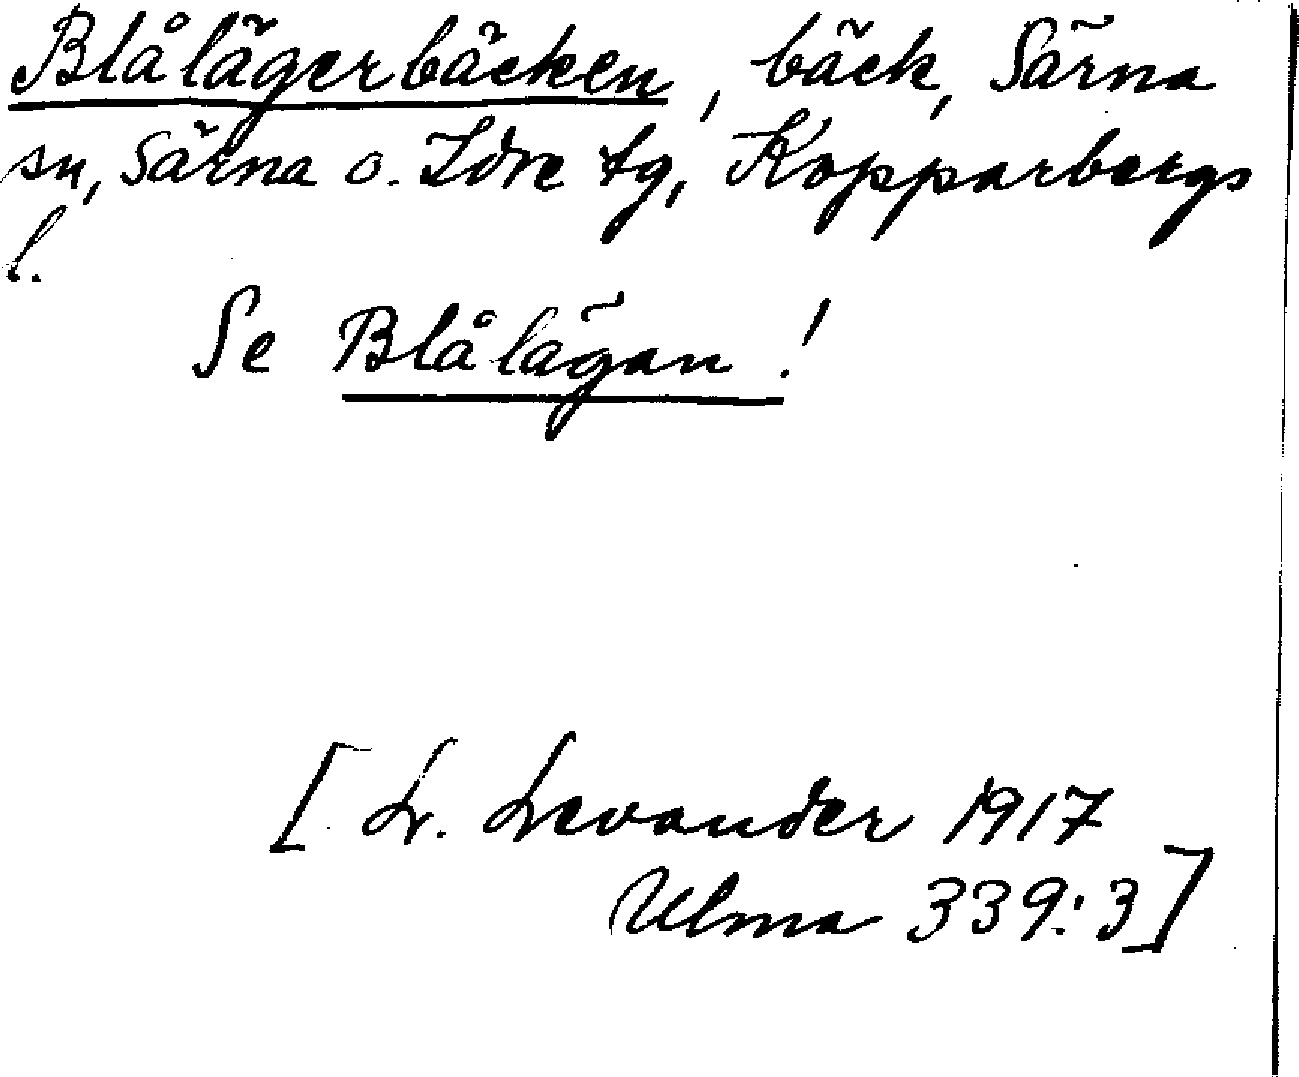 Blålägerbäcken, bäck, Särna
sn, Särna o. Idre tg, Kopparbergs
l.
Se Blålägan!
[L. Levander 1917
Ulma 339:3]